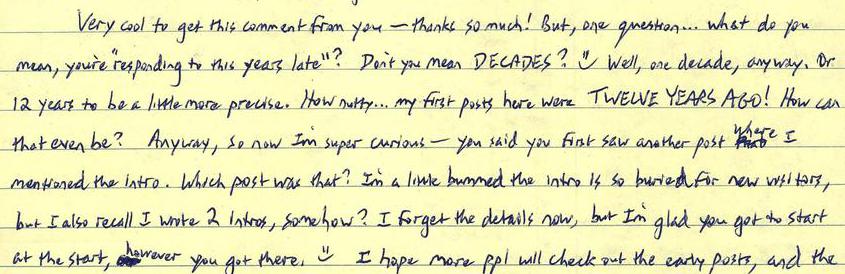 Very cool to get this comment from you — thanks so much! But, one question... what do you
mean, you're "responding to this years late"? Don't you mean DECADES? :) Well, one decade, anyway. Or
12 years to be a little more precise. How nutty... my first posts here were TWELVE YEARS AGO! How can
that even be? Anyway, so now I'm super curious — you said you first saw another post where I
mentioned the intro. Which post was that? I'm a little bummed the intro is so buried for new visitors,
but I also recall I wrote 2 intros, somehow? I forget the details now, but I'm glad you got to start
at the start, however you got there. :) I hope more ppl will check out the early posts, and the